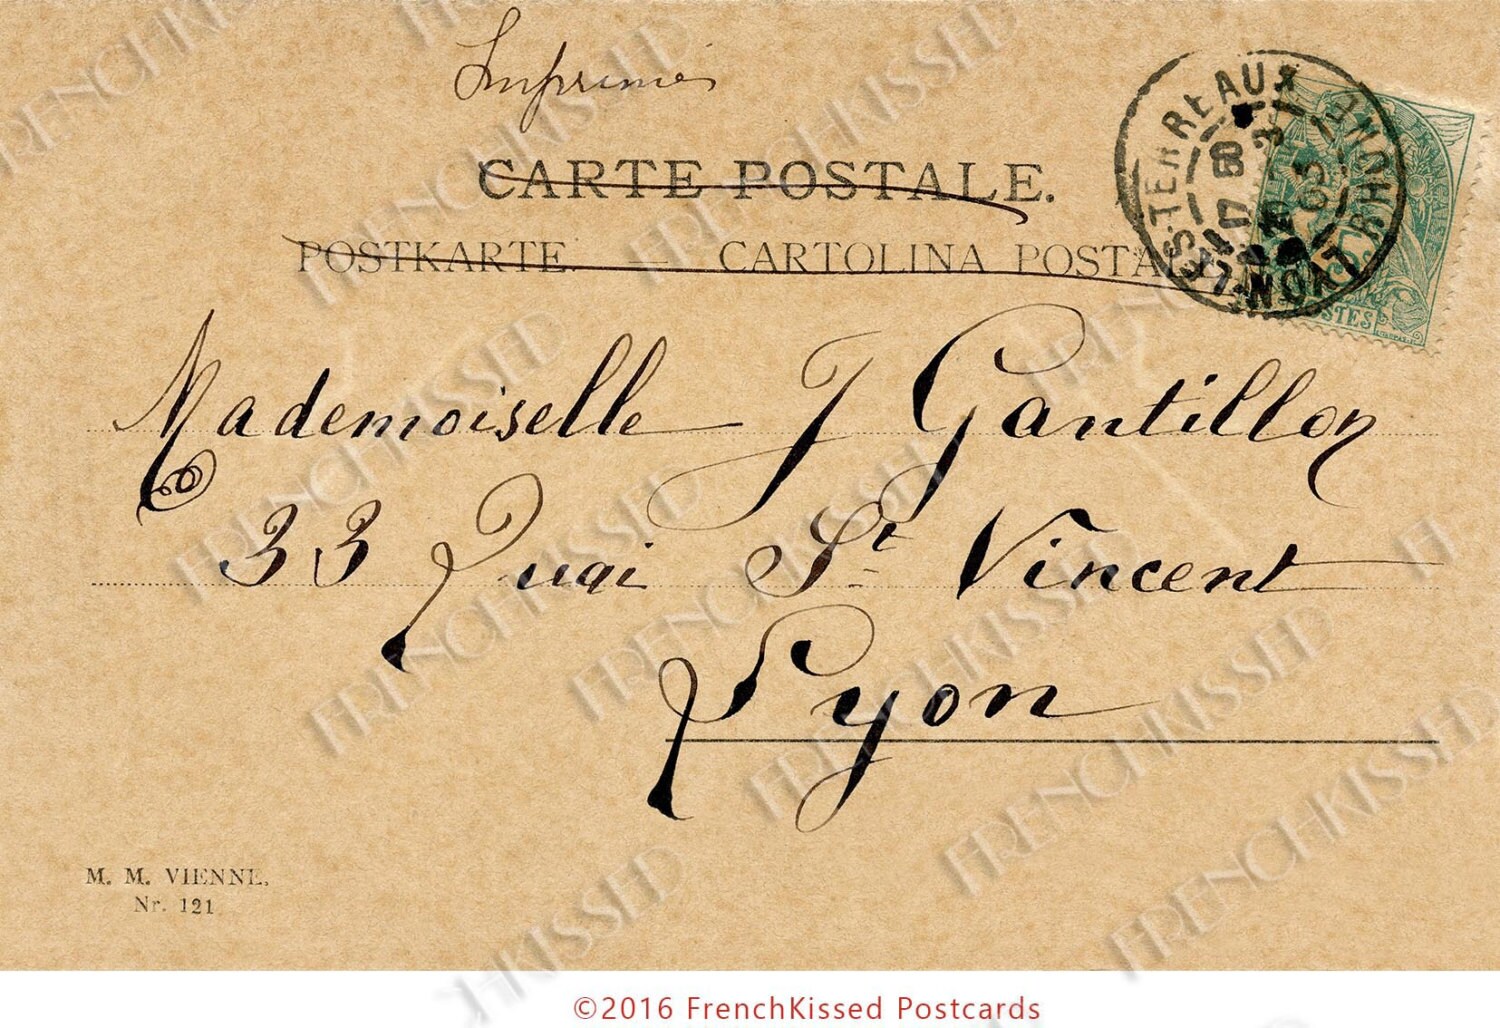 Imprimés
CARTE POSTALE.
POSTKARTE. — CARTOLINA POSTALE.
LYON-LES-TERREAUX
RHONE
Mademoiselle J Gantillon
33 Quai St Vincent
Lyon
M. M. VIENNE,
Nr. 121
FRENCHKISSED
©2016 FrenchKissed Postcards